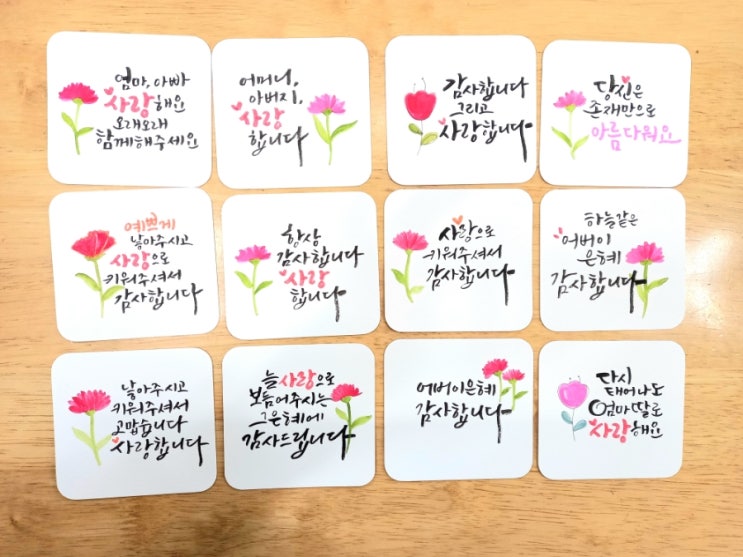 엄마, 아빠
사랑해요
오래오래
함께해주세요
어머니,
아버지,
사랑
합니다
감사합니다
그리고
사랑합니다
당신은
존재만으로
아름다워요
예쁘게
낳아주시고
사랑으로
키워주셔서
감사합니다
항상
감사합니다
사랑
합니다
사랑으로
키워주셔서
감사합니다
하늘같은
어버이
은혜
감사합니다
낳아주시고
키워주셔서
고맙습니다
사랑합니다
늘 사랑으로
보듬어주시는
그은혜에
감사드립니다
어버이은혜
감사합니다
다시
태어나도
엄마딸로
사랑해요